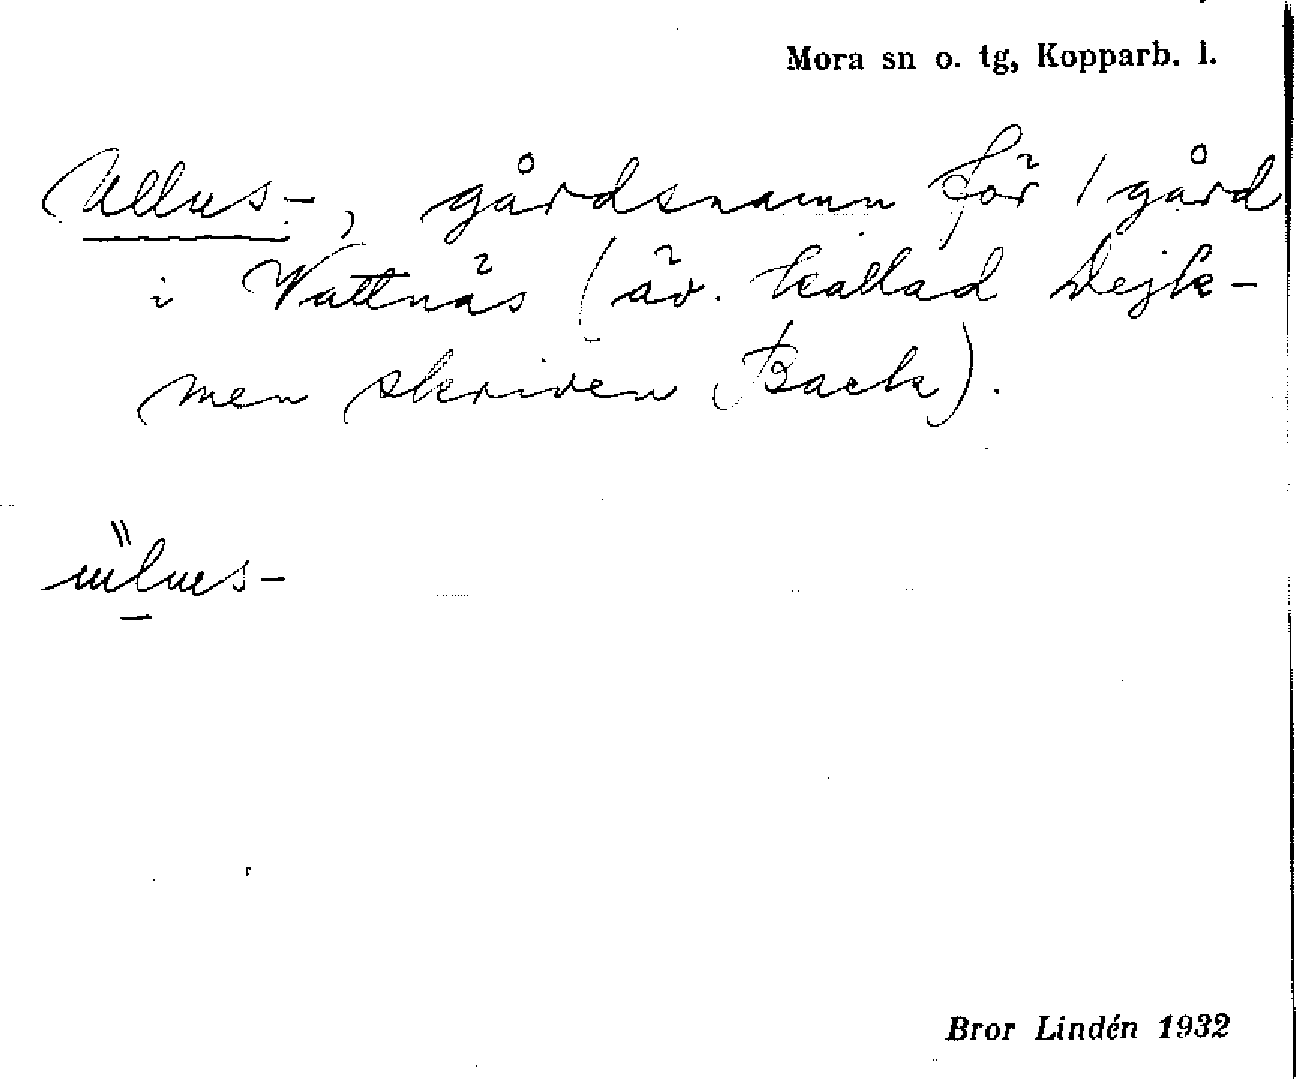 Mora sn o. tg, Kopparb. l.
Ullus-, gårdsnamn för 1 gård
i Vattnäs (äv. kallad Dejk-
men skriven Back).
Bror Lindén 1932